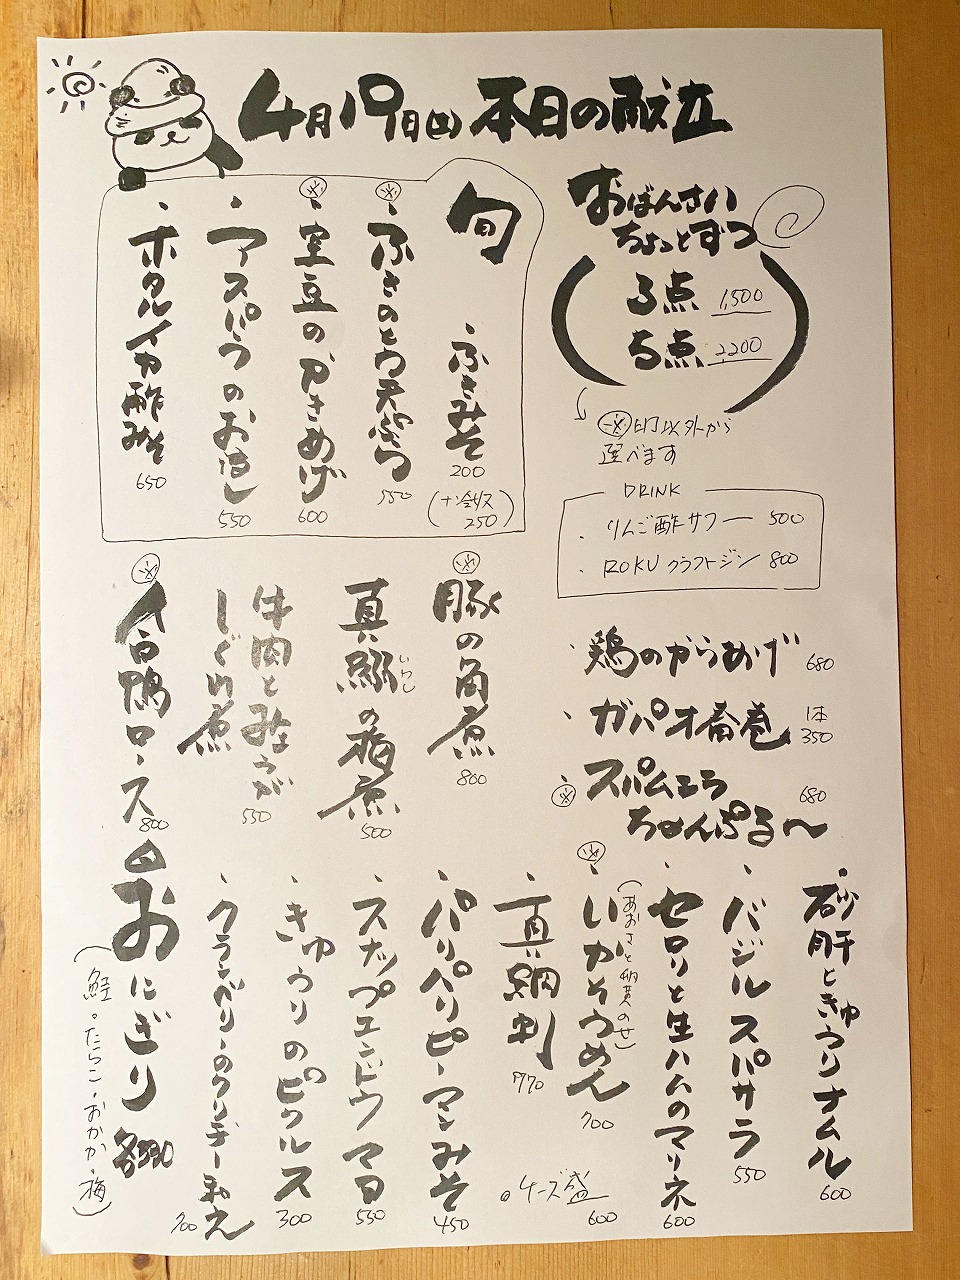 4月19日(土) 本日の献立
おばんさい
ちょっとずつ
3点 1,500
5点 2,200
※印以外から
選べます
旬
・ふきみそ 200
(ナン付 250)
※・ふきのとう天ぷら 550
※・空豆のかきあげ 600
・アスパラのおひたし 550
・ホタルイカ酢みそ 650
DRINK
・りんご酢サワー 500
・ROKU クラフトジン 800
豚の角煮 800
真鰯の梅煮 500
いわし
牛肉とみょうが
しぐれ煮 550
※合鴨ロース 800
・鶏のからあげ 680
・ガパオ春巻 1本 350
※・スパムニラ
ちゃんぷる〜 680
・砂肝ときゅうりナムル 600
・バジルスパサラ 550
・セロリと生ハムのマリネ 600
※・いかそうめん 700
(あおさと納豆のせ)
・真鯛刺 770
◦チーズ盛 600
・パリパリピーマンみそ 450
・スナップエンドウマヨ 550
・きゅうりのピクルス 300
・クランベリーのクリチー和え 700
おにぎり 各330
(鮭・たらこ・おかか・梅)